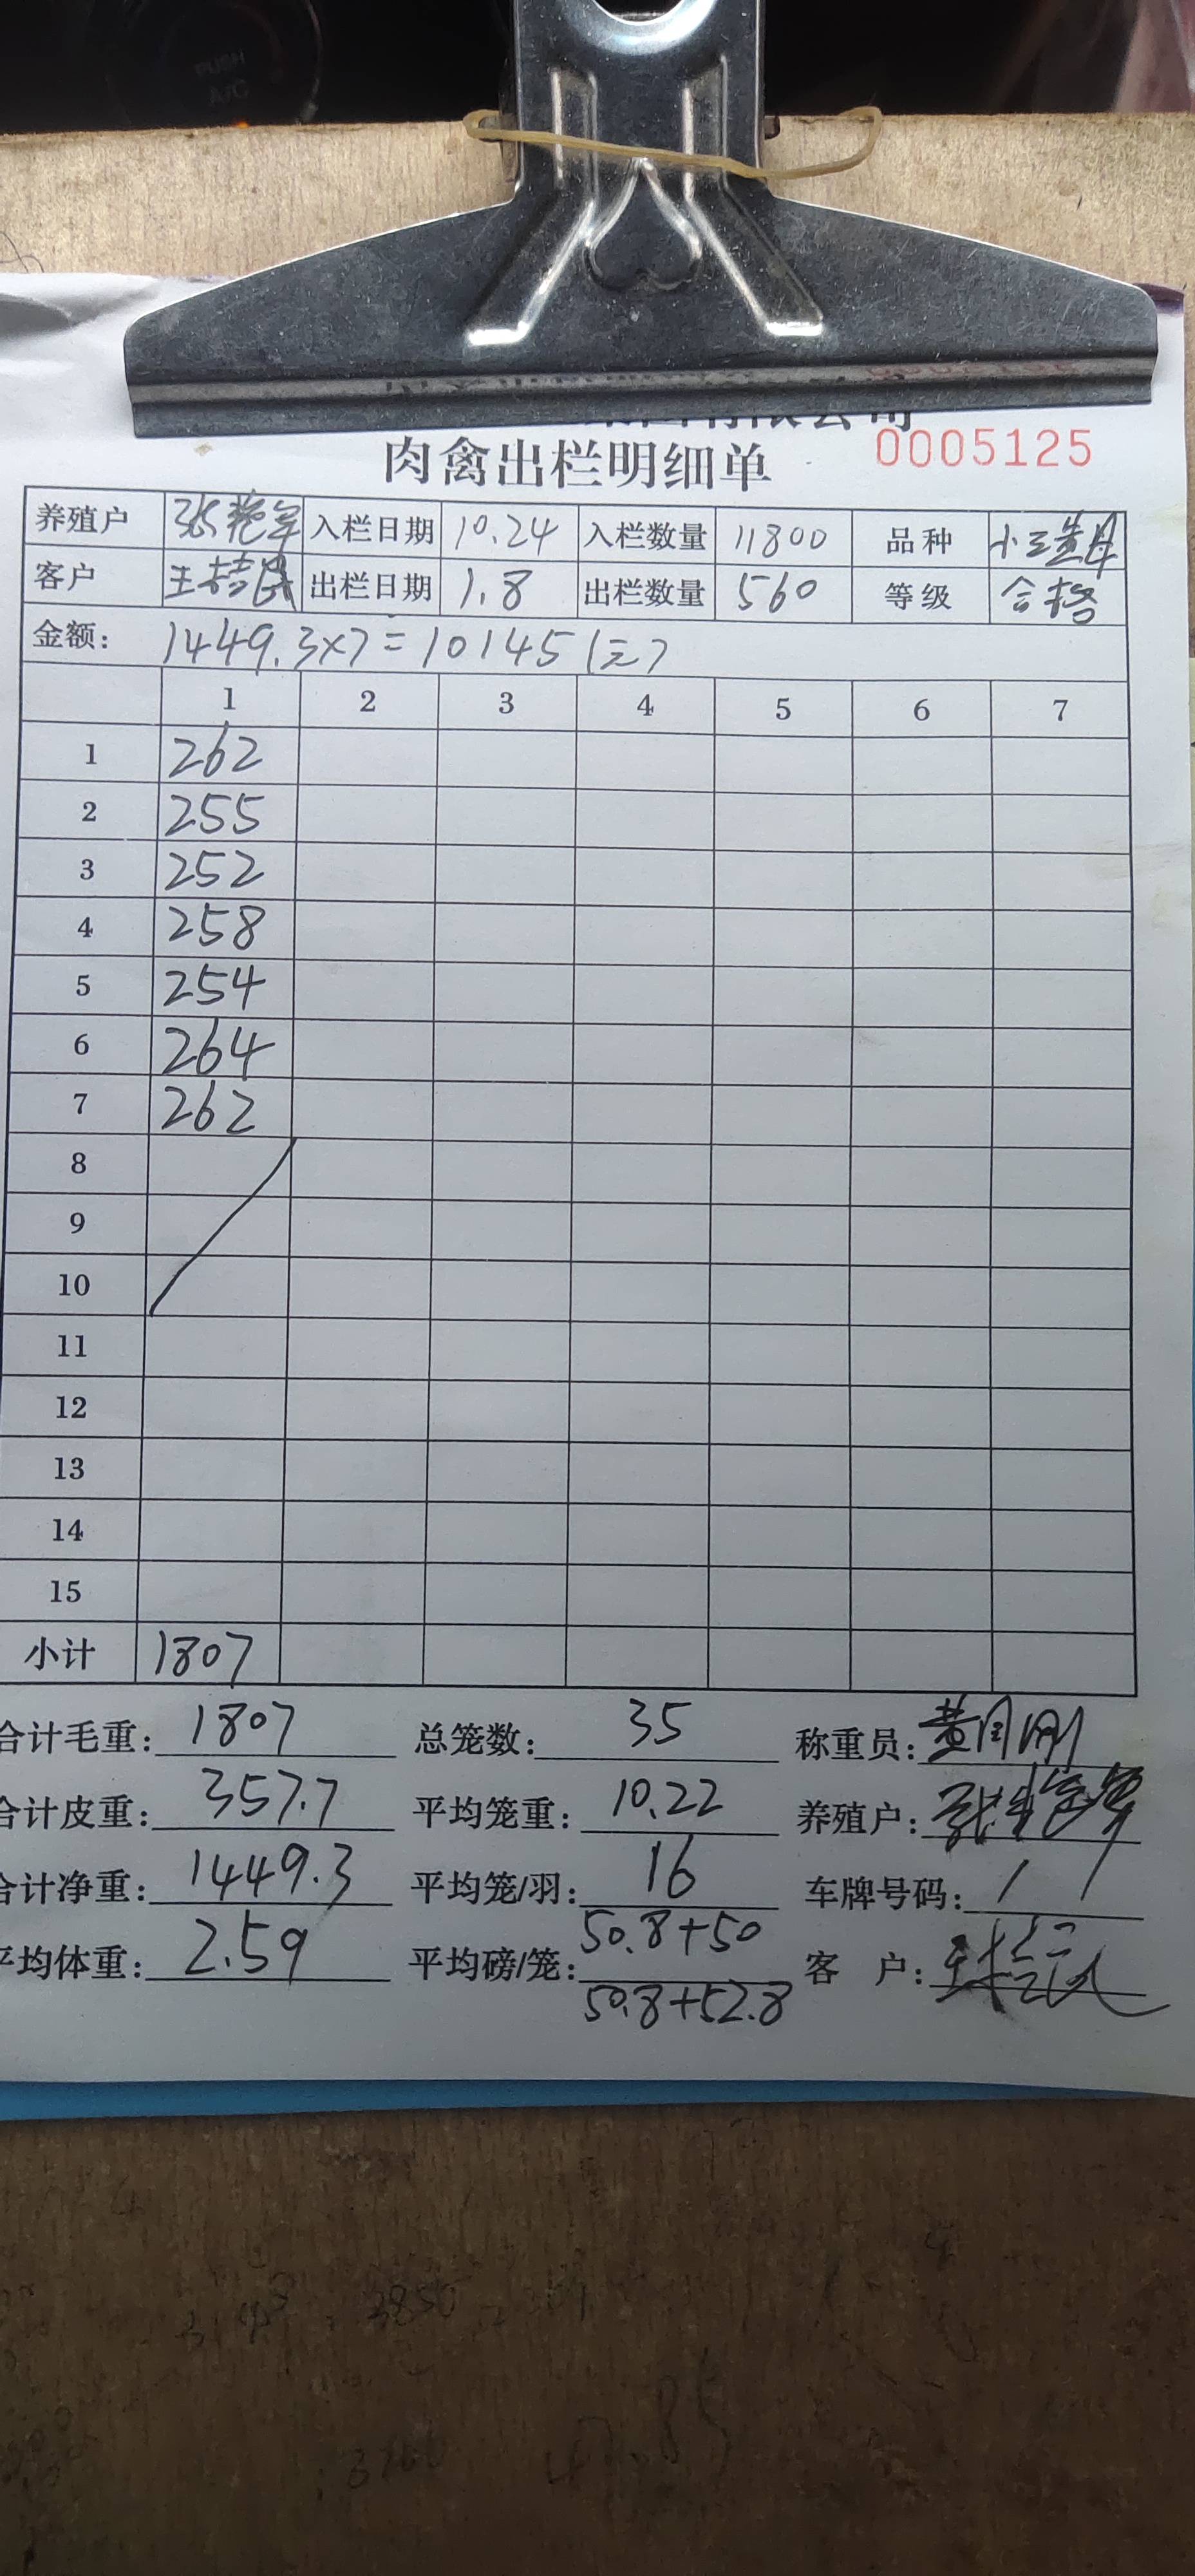 PUSH
A/C
有限公司
肉禽出栏明细单 0005125
养殖户 张艳军 入栏日期 10.24 入栏数量 11800 品种
客户 出栏日期 1.8 出栏数量 560 等级 合格
金额: 1449.3×7=10145(元)
1 2 3 4 5 6 7
1 262
2 255
3 252
4 258
5 254
6 264
7 262
8
9
10
11
12
13
14
15
小计 1807
合计毛重: 1807 总笼数: 35 称重员:
合计皮重: 357.7 平均笼重: 10.22 养殖户:
合计净重: 1449.3 平均笼/羽: 16 车牌号码: /
平均体重: 2.59 平均磅/笼: 50.8+50 客 户:
50.8+52.8